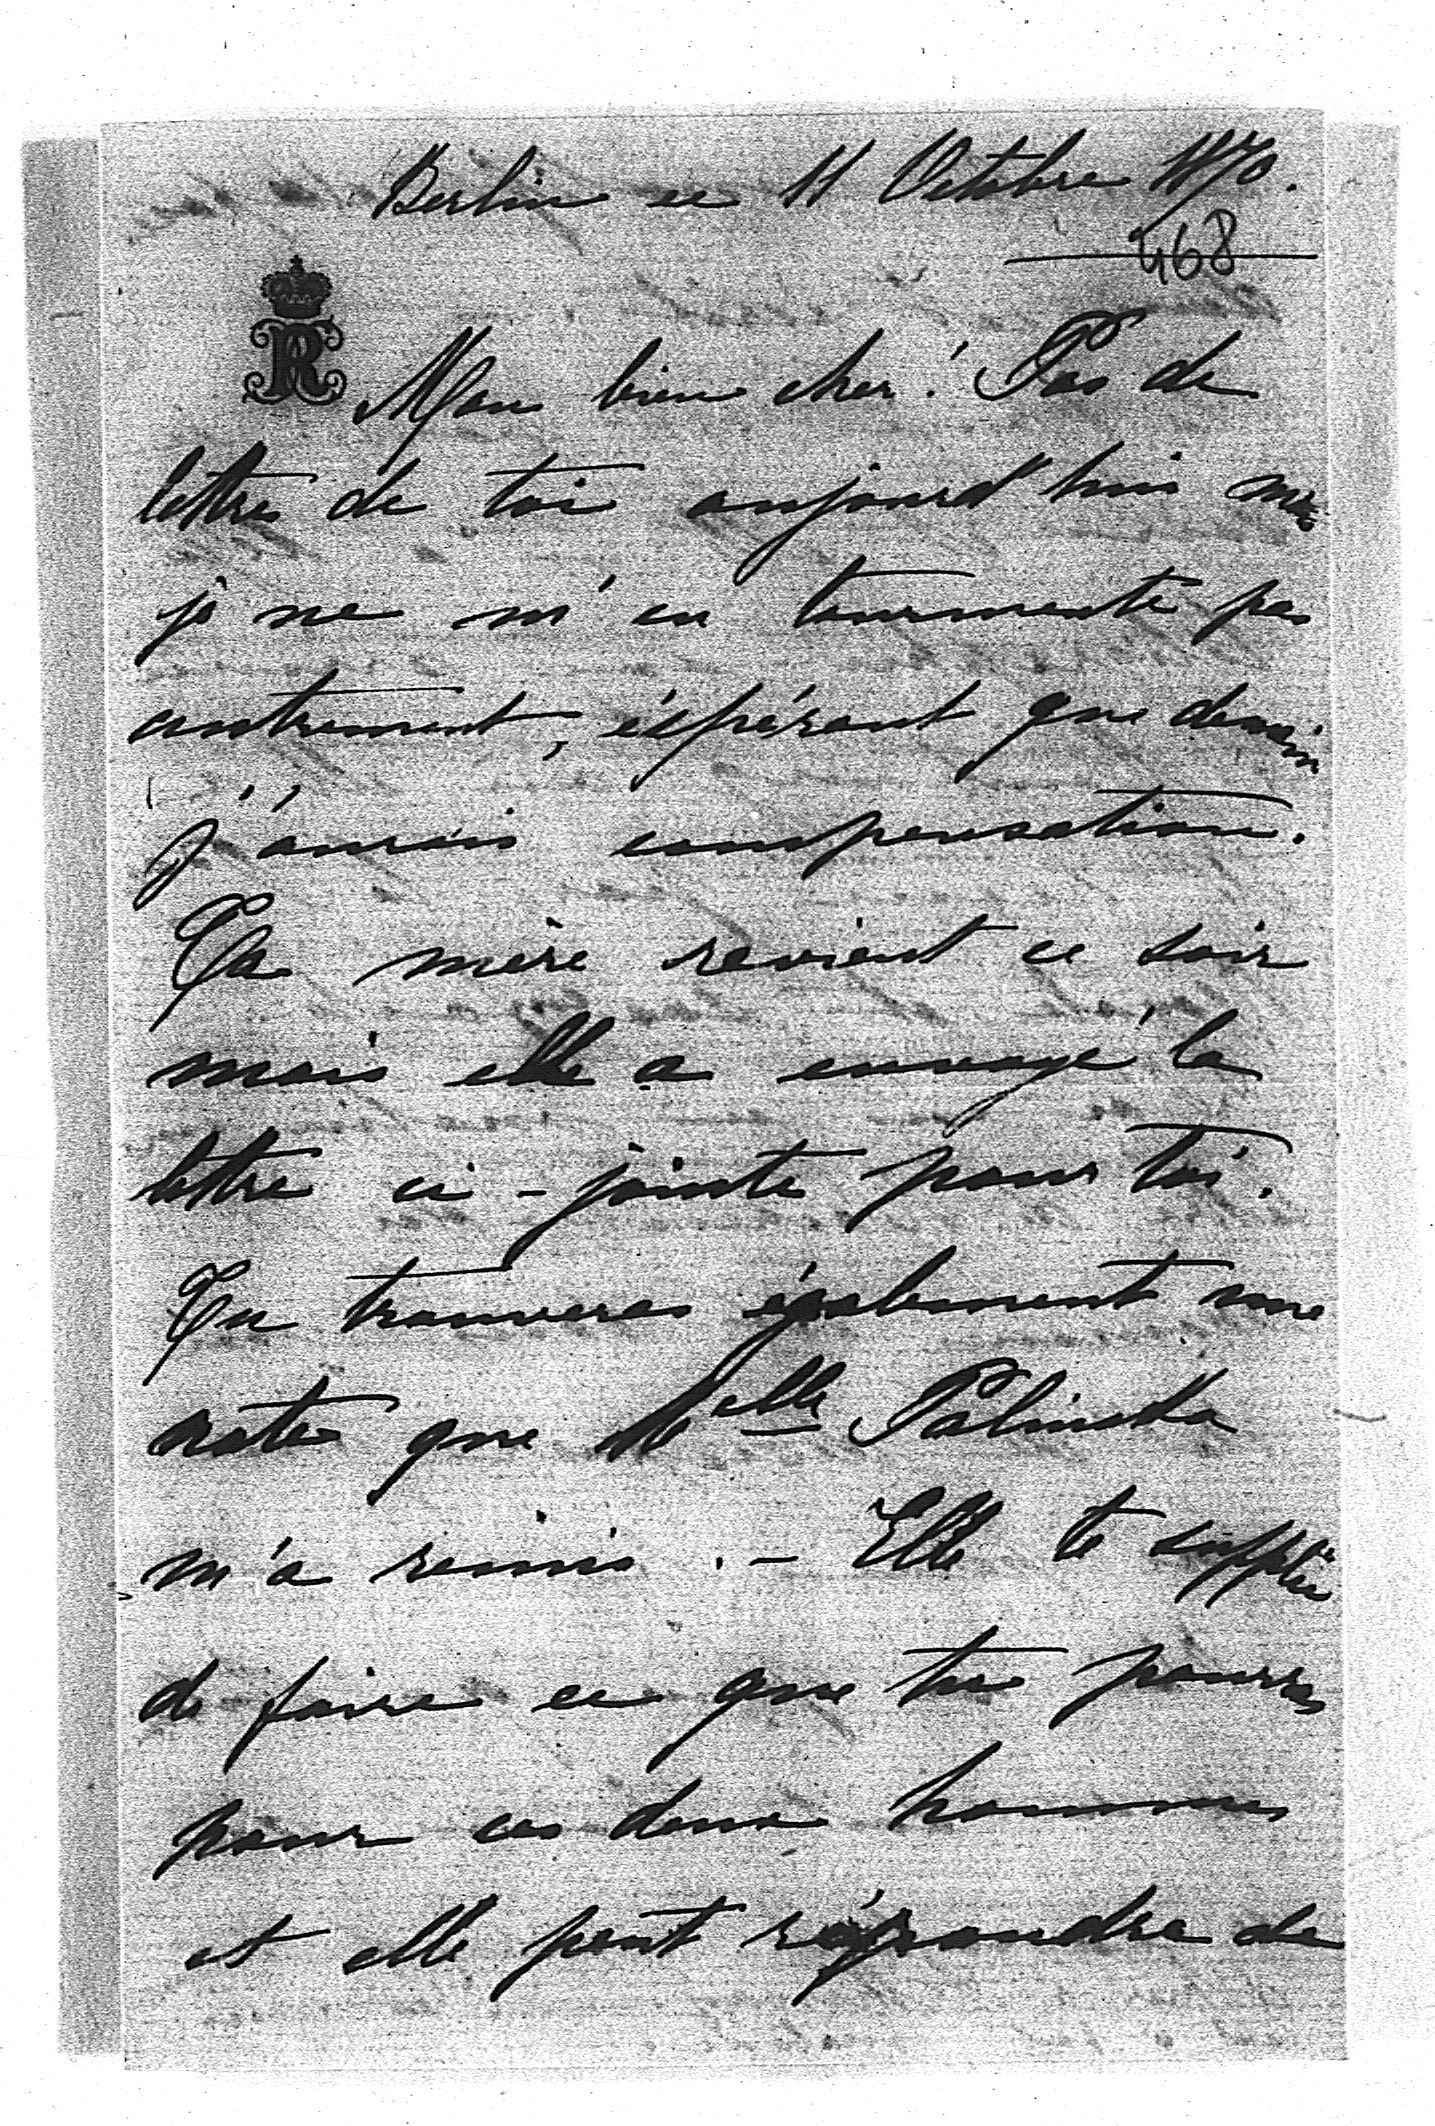 Berlin ce 11 Octobre 1870.
468
R
Mon bien cher! Pas de
lettre de toi aujourd'hui mais
je ne m'en tourmente pas
autrement, éspérant que demain
j'aurais compensation.
Ta mère revient ce soir
mais elle a envoyé la
lettre ci-jointe pour toi.
Tu trouveras également une
note que Melle
m'a remis. - Elle te supplie
de faire ce que tu pourras
pour ces deux hommes
et elle peut répondre de